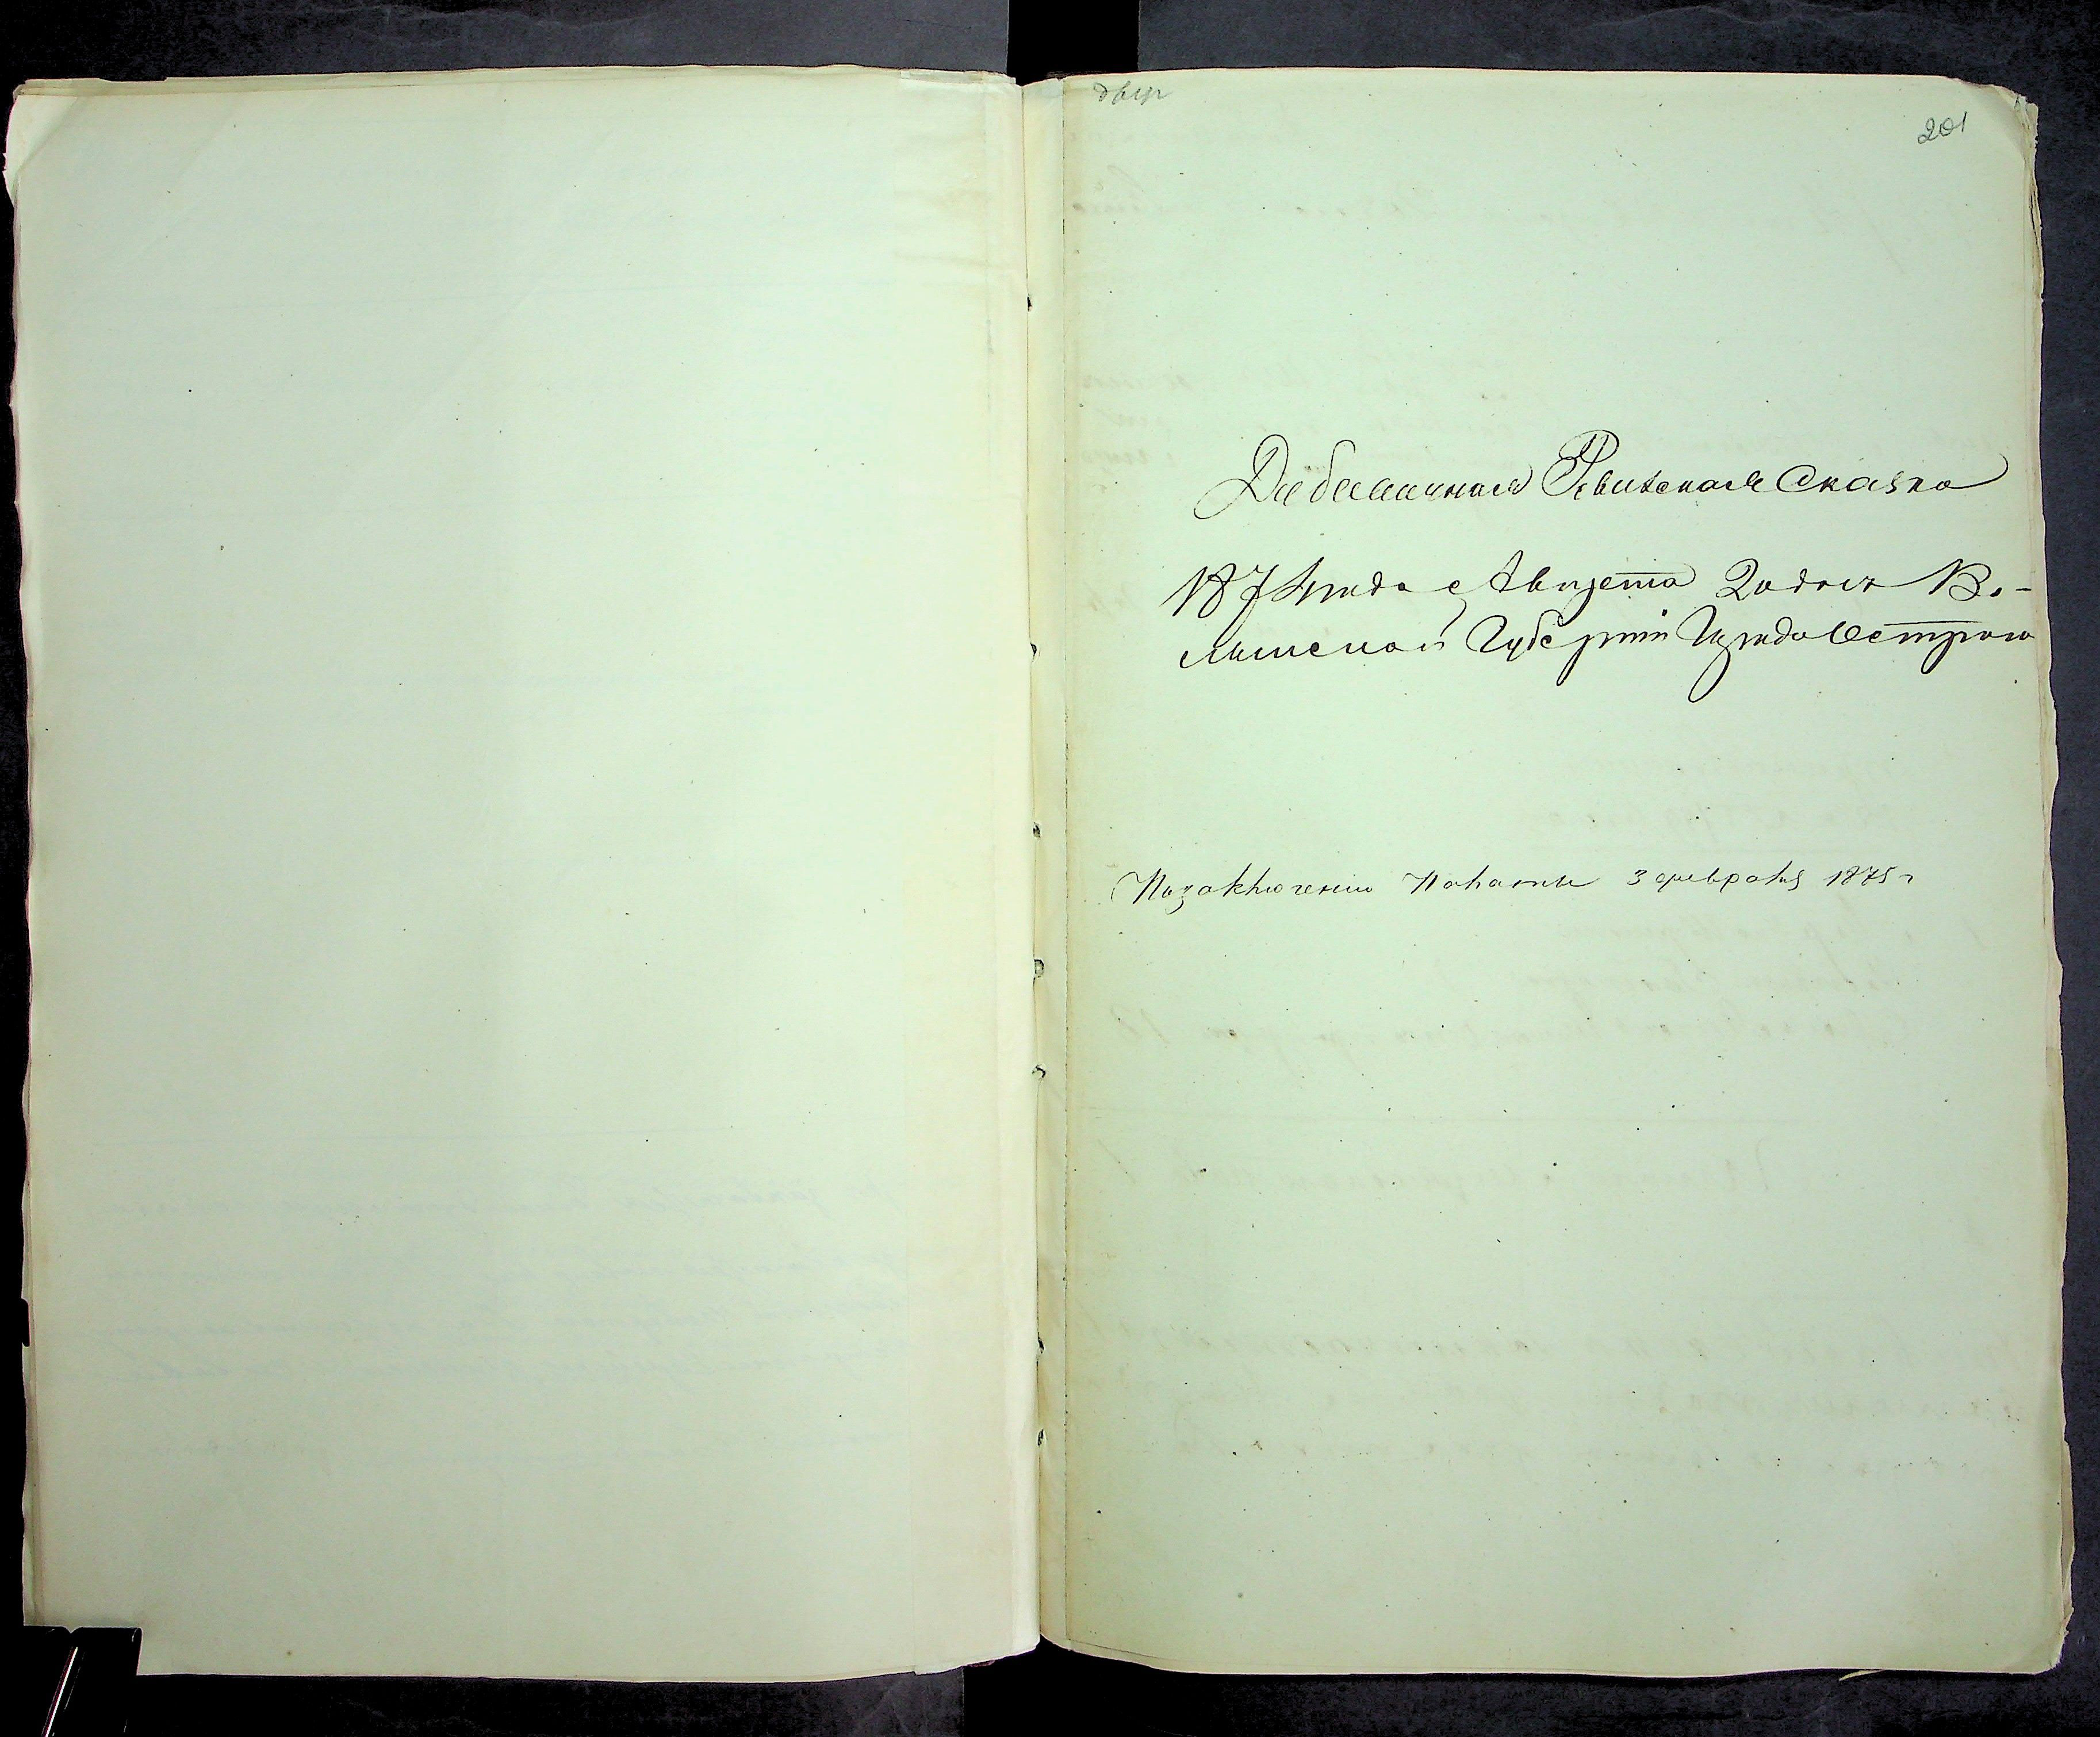 201
Дабавачная Ревизская Сказка
1874 года Августа 2 о дня Во-
лынской Губерніи Города Острога
По заключению Палаты 3 февраля 1875 г